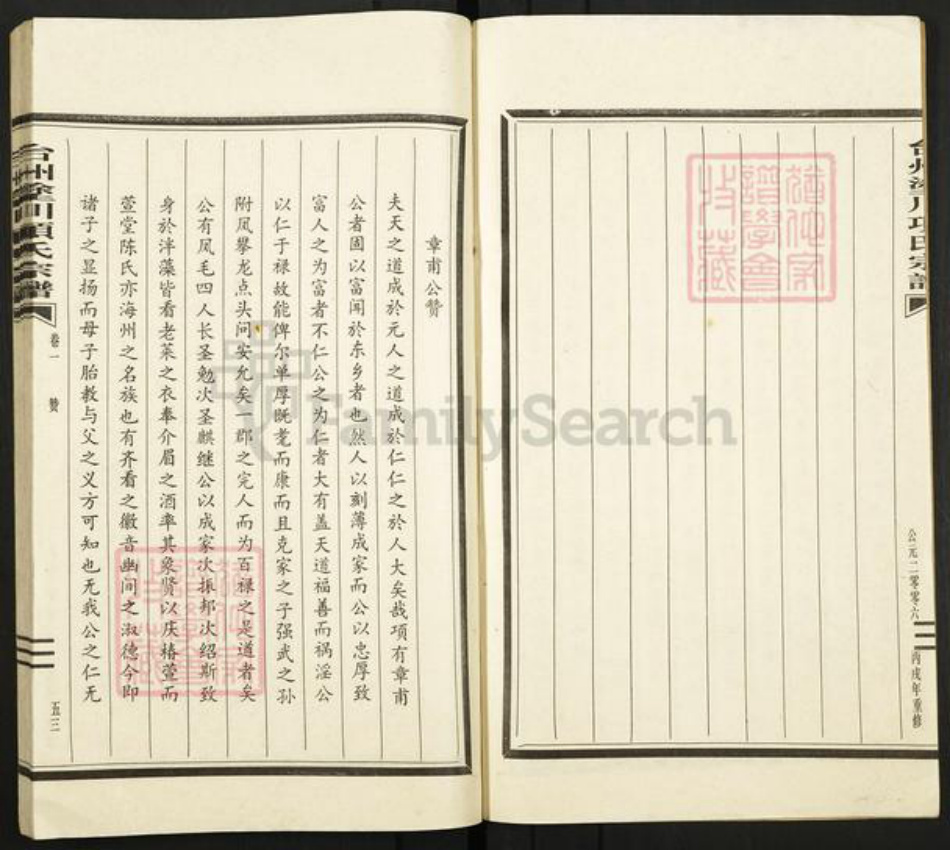 台州涂川項氏宗譜
公元二零零六
丙戌年重修
猶他家
譜學會
收藏
章甫公赞
夫天之道成於元人之道成於仁仁之於人大矣哉项有章甫
公者固以富闻於东乡者也然人以刻薄成家而公以忠厚致
富人之为富者不仁公之为仁者大有盖天道福善而祸淫公
以仁于禄故能俾尔单厚既耄而康而且克家之子强武之孙
附凤攀龙点头问安允矣一郡之完人而为百禄之是道者矣
公有凤毛四人长圣勉次圣麒继公以成家次振邦次绍斯致
身於泮藻皆看老莱之衣奉介眉之酒率其象贤以庆椿萱而
萱堂陈氏亦海州之名族也有齐看之徽音幽间之淑德今即
诸子之显扬而母子胎教与父之义方可知也无我公之仁无
台州涂川項氏宗譜
卷一
赞
五三
猶他家
譜學會
收藏
FamilySearch